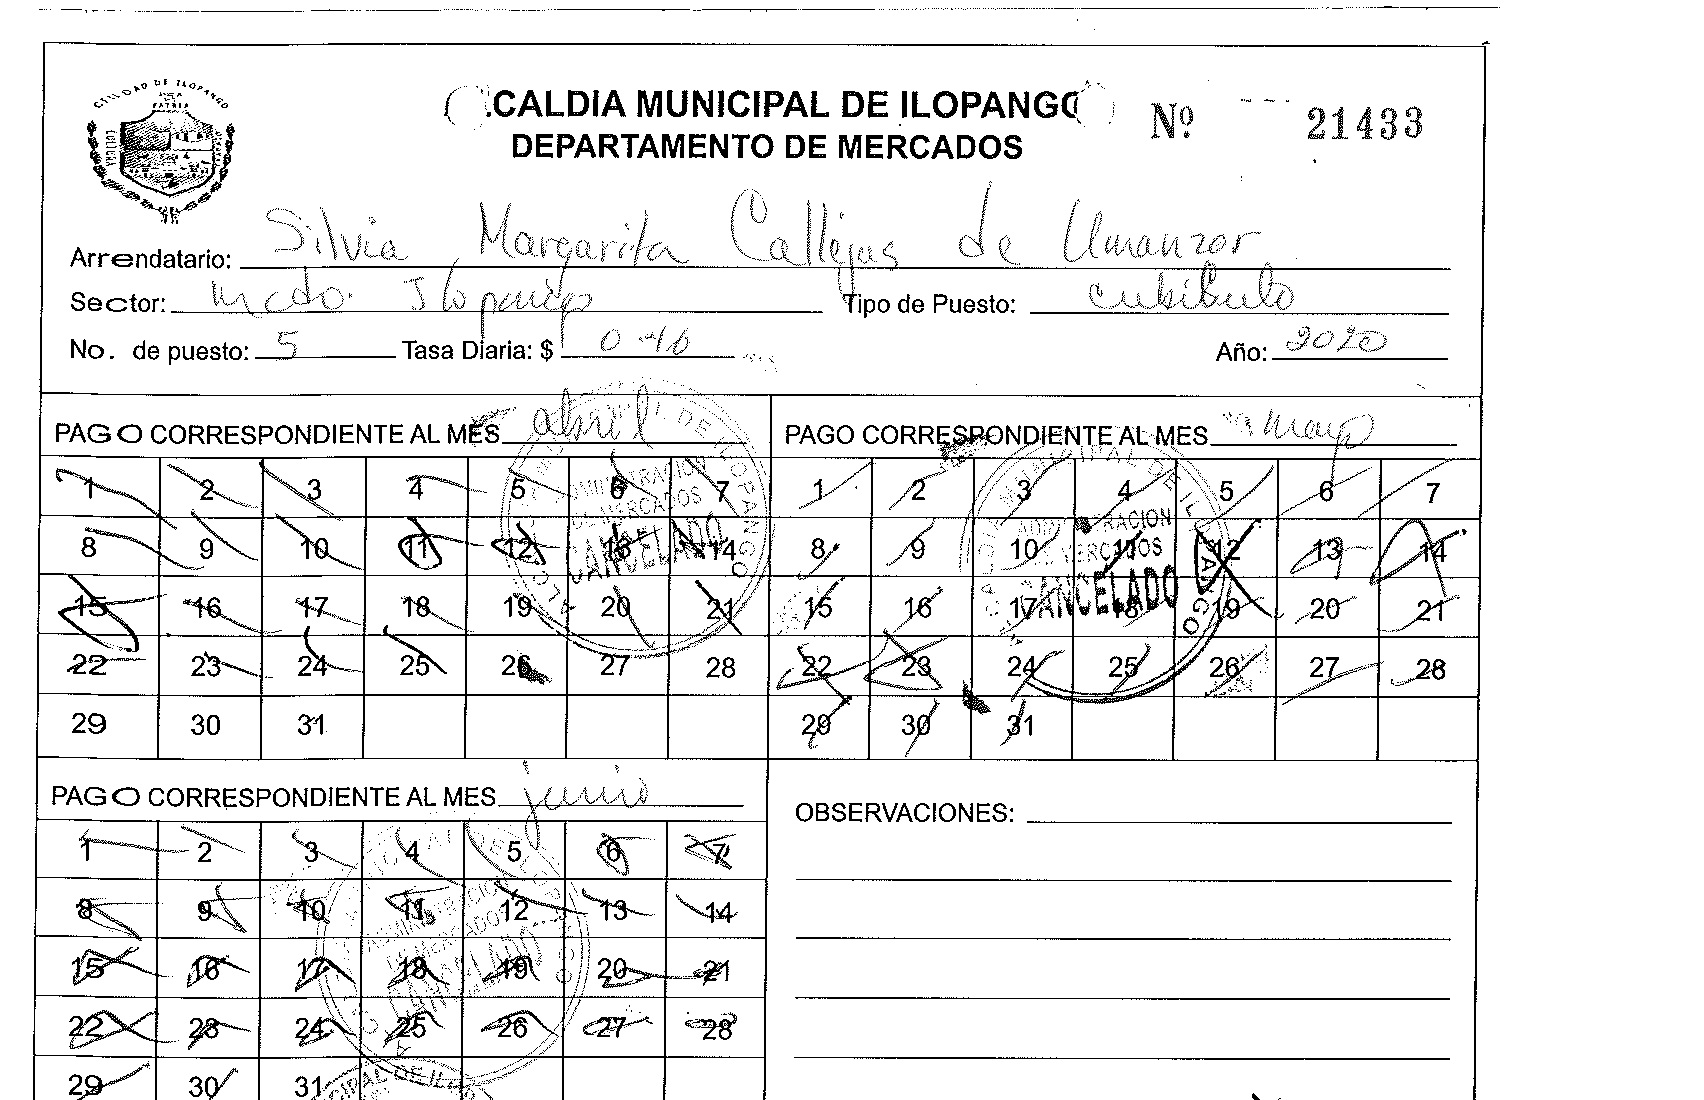 ALCALDIA MUNICIPAL DE ILOPANGO
DEPARTAMENTO DE MERCADOS
Nº 21433
Arrendatario: Silvia Margarita Callejas de Umanzor
Sector: Mcdo. Ilopango Tipo de Puesto: cubiculo
No. de puesto: 5 Tasa Diaria: $ 0.46 Año: 2020
PAGO CORRESPONDIENTE AL MES abril
1 2 3 4 5 6 7
8 9 10 11 12 13 14
15 16 17 18 19 20 21
22 23 24 25 26 27 28
29 30 31
ADMINISTRACION
DE MERCADOS
CANCELADO
PAGO CORRESPONDIENTE AL MES mayo
1 2 3 4 5 6 7
8 9 10 11 12 13 14
15 16 17 18 19 20 21
22 23 24 25 26 27 28
29 30 31
ADMINISTRACION
DE MERCADOS
CANCELADO
PAGO CORRESPONDIENTE AL MES junio
1 2 3 4 5 6 7
8 9 10 11 12 13 14
15 16 17 18 19 20 21
22 23 24 25 26 27 28
29 30 31
ADMINISTRACION
DE MERCADOS
CANCELADO
OBSERVACIONES: